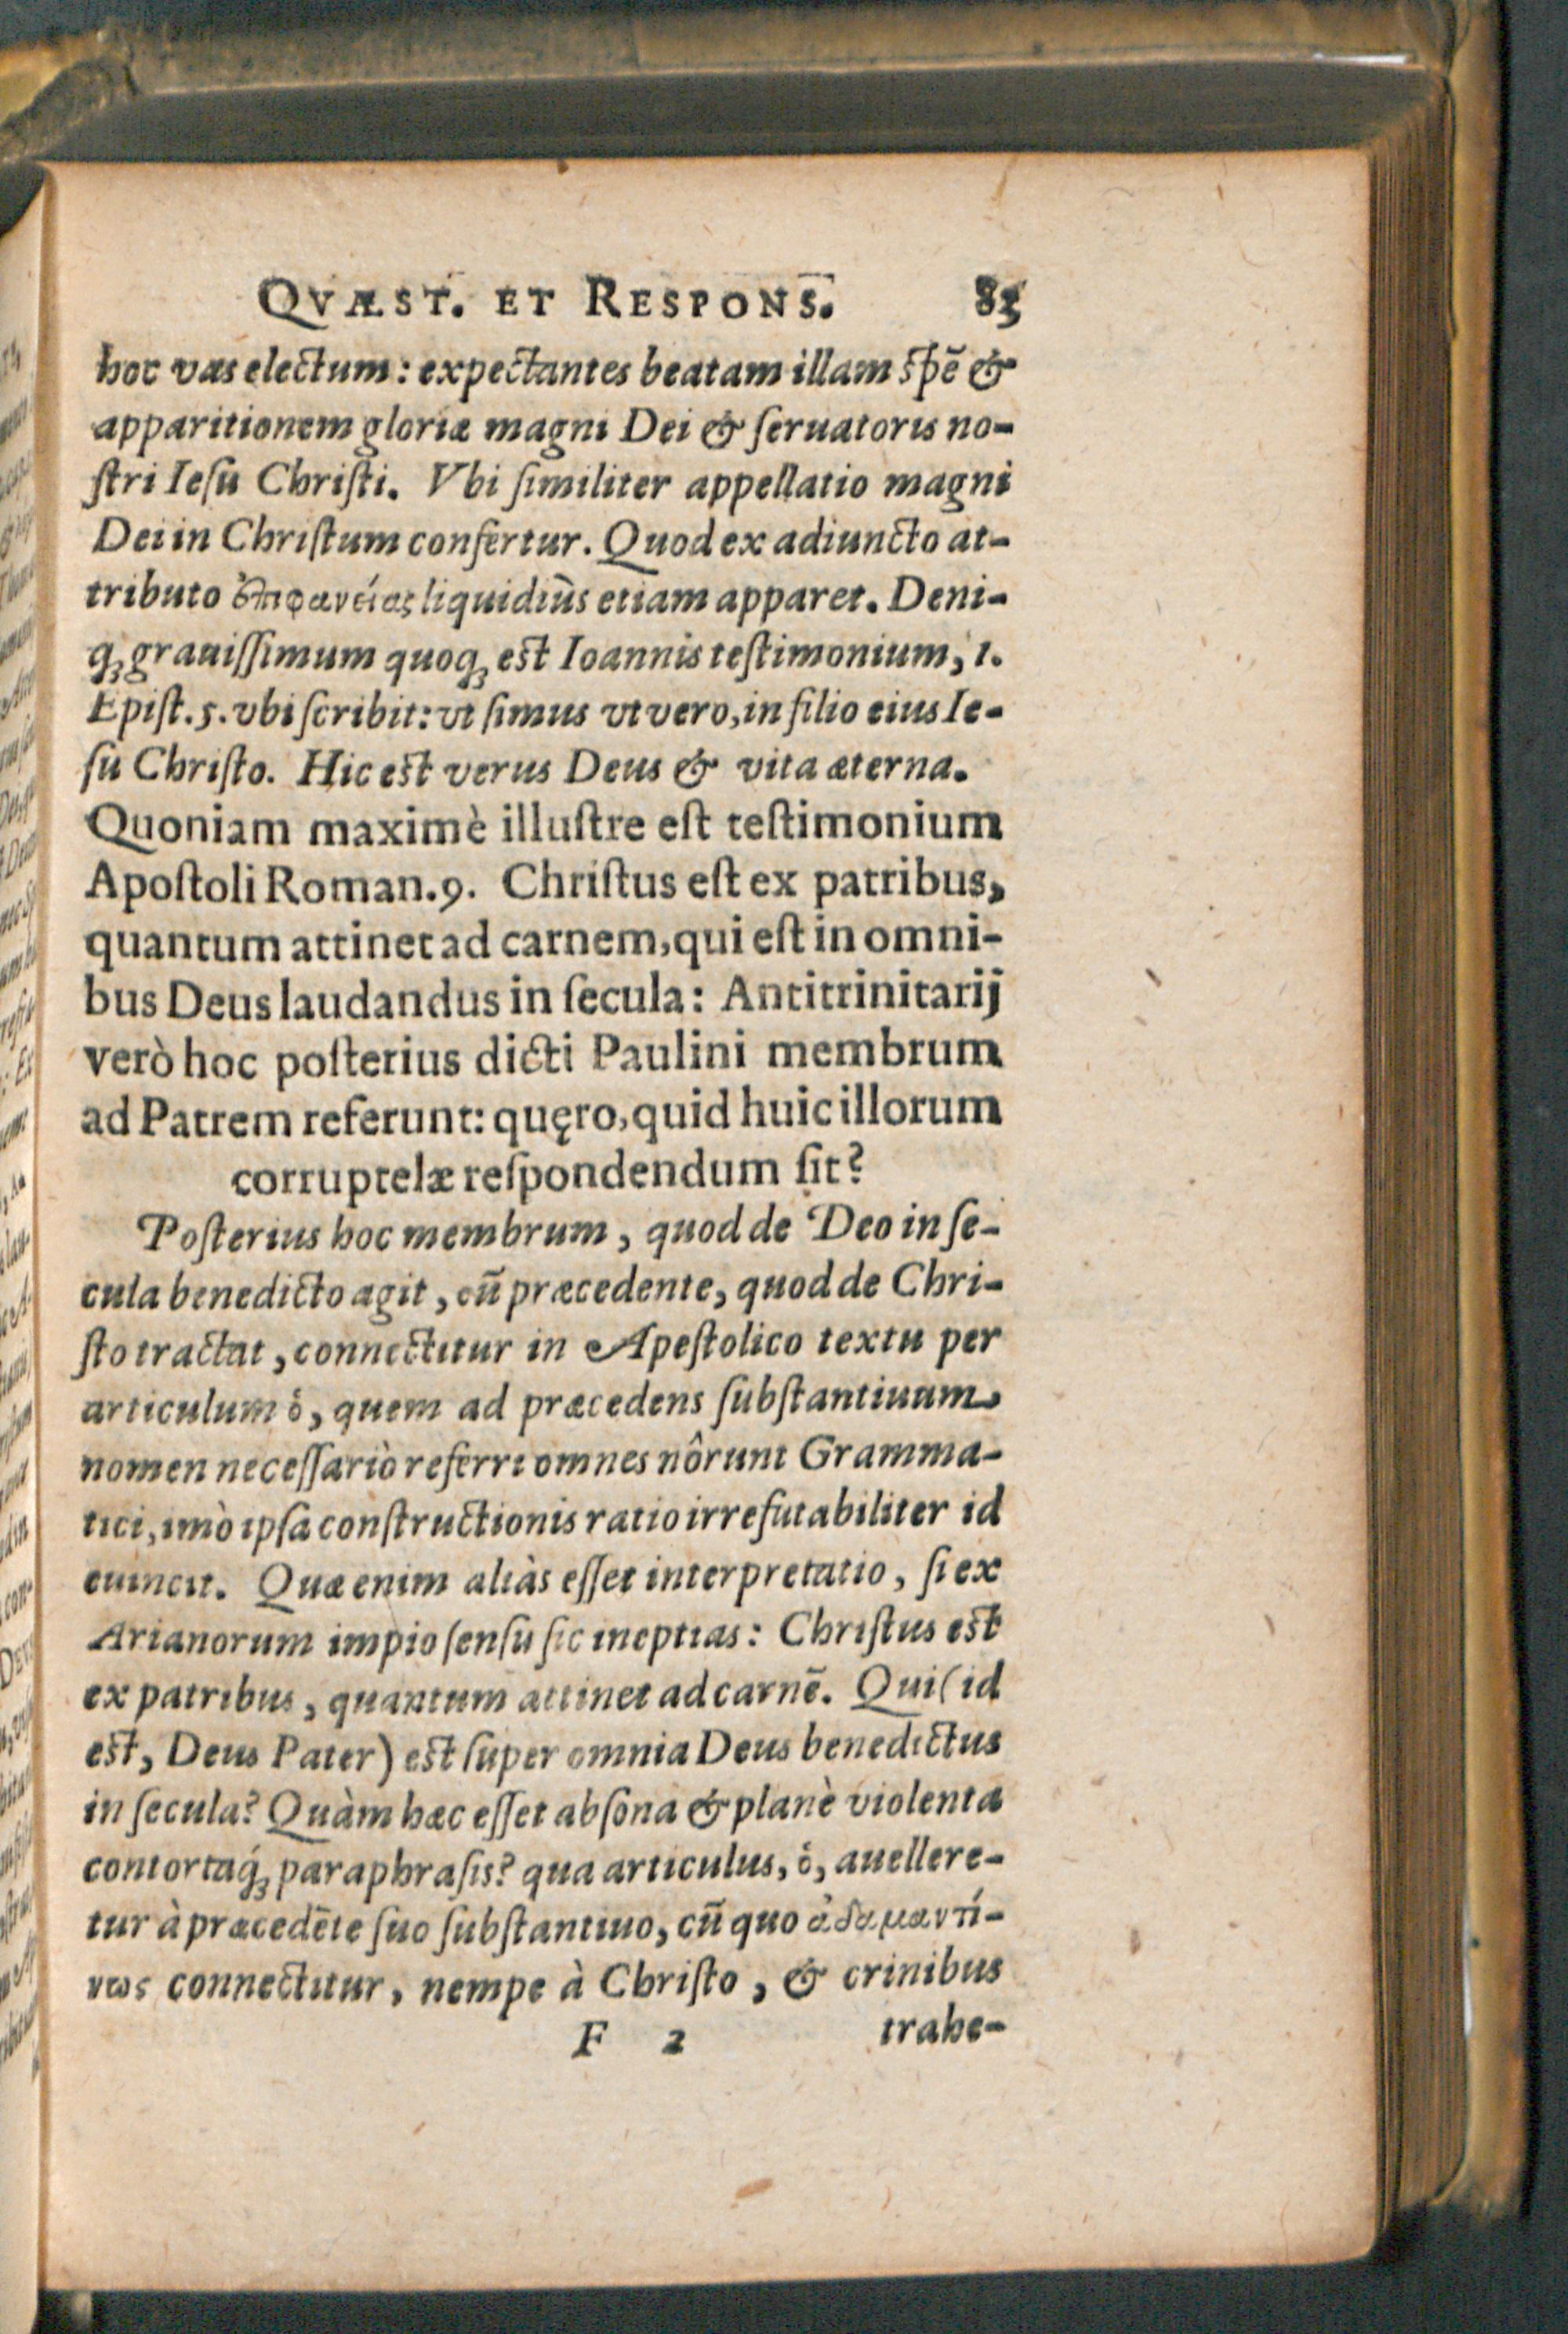 QVÆST. ET RESPONS. 83
hoc vas electum: expectantes beatam illam spē &
apparitionem gloriæ magni Dei & ſeruatoris no-
ſtri Ieſu Chriſti. Vbi ſimiliter appellatio magni
Dei in Chriſtum confertur. Quod ex adiuncto at-
tributo ἐπιφανείας liquidiùs etiam apparet. Deni-
q́ʒ grauiſſimum quoqʒ est Ioannis teſtimonium, 1.
Epiſt. 5. vbi ſcribit: vt ſimus vt vero, in filio eius Ie-
ſu Chriſto. Hic est verus Deus & vita æterna.
Quoniam maximè illuſtre eſt teſtimonium
Apoſtoli Roman. 9. Chriſtus eſt ex patribus,
quantum attinet ad carnem, qui eſt in omni-
bus Deus laudandus in ſecula: Antitrinitarij
verò hoc poſterius dicti Paulini membrum
ad Patrem referunt: quęro, quid huic illorum
corruptelæ reſpondendum ſit?
Poſterius hoc membrum, quod de Deo in ſe-
cula benedicto agit, cū præcedente, quod de Chri-
ſto tractat, connectitur in Apeſtolico textu per
articulum ὁ, quem ad præcedens ſubſtantiuum
nomen neceſſariò referri omnes nôrunt Gramma-
tici, imò ipſa conſtructionis ratio irrefutabiliter id
euincit. Quæ enim aliàs eſſet interpretatio, ſi ex
Arianorum impio ſenſu ſic ineptias: Chriſtus est
ex patribus, quantum attinet ad carnē. Qui (id
est, Deus Pater) est ſuper omnia Deus benedictus
in ſecula? Quàm hæc eſſet abſona & planè violenta
contortaq́ʒ paraphraſis? qua articulus, ὁ, auellere-
tur à præcedēte ſuo ſubſtantiuo, cū quo ἀδαμαντί-
νως connectitur, nempe à Chriſto, & crinibus
F 2 trahe-